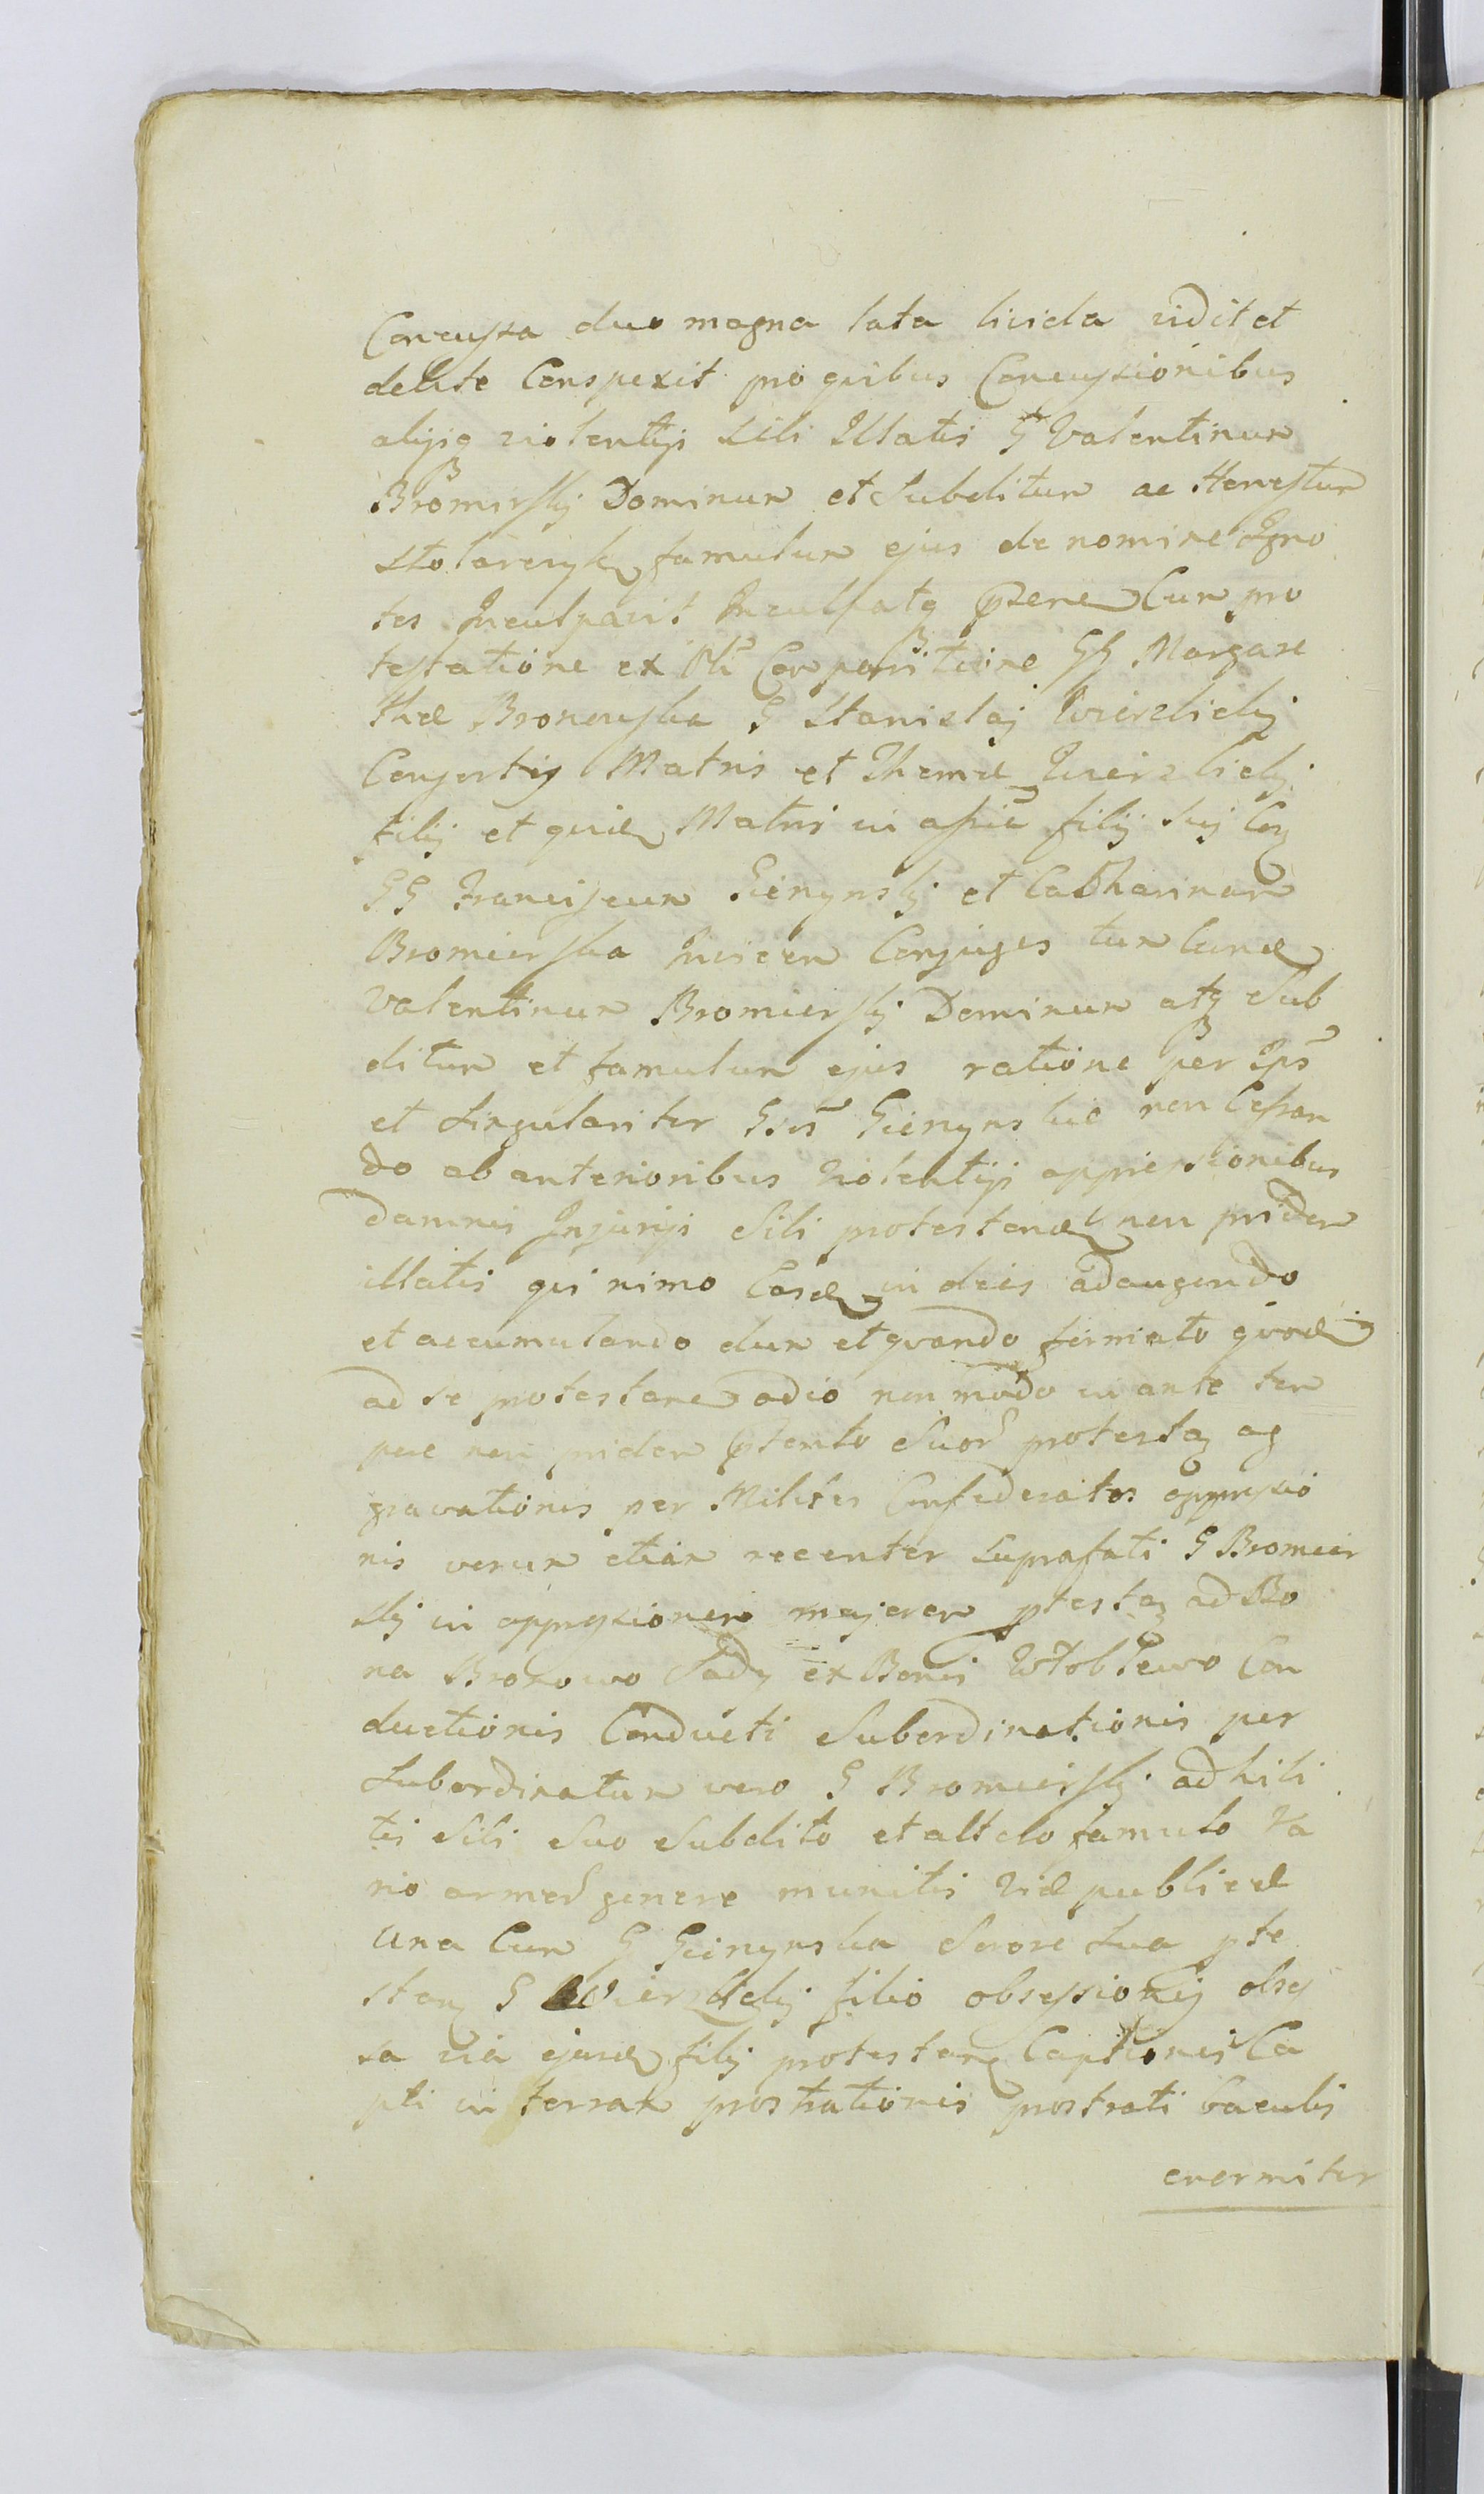 Concussa duo magna lata livida vidit et
debite Conspexit pro quibus Concussionibus
alijsq violentijs sibi Illatis G Valentinum
Bromirskj Dominum et Subditum ac Honestum
Stolarczyk famulum ejus de nomine Igno
tos Inculpavit Inculpatq Cum pro
testatione ex Comparitione GG Margare
thæ Bronowska G Stanislaj Wierzbickj
Consortis Matris et Thomæ Wierzbickj
filij et quid Matris in filij sui Con
GG Franciscum Gienynskj et Catharinam
Bromierska Invicem Conjuges tum eund
Valentinum Bromierskj Dominum atq Sub
ditum et famulum ejus ratione per Ips
et Singulariter Gienynskie non Cessan
do ab anterioribus Violentijs oppressionibus
damnis Injurijs Sibi protestand non pridem
illatis qui nimo Easd in dies adaugendo
et accumulando dum et quando fermento quod
ad se protestane odio non modo in ante tem
pore non pridem ptento Suor protestan ag
gravationis per Milites Confederatos oppressio
nis verum etiam recenter Suprafati G Bromier
skj in oppressionem majorem ptestan ad Bo
na Brozowo Sady ex Bonis Wtoblewo Con
ductionis Conducti Subordinationis per
Subordinatum vero G Bromierskj adhibi
tis Sibi Suo Subdito et altdo famulo Va
rio armor genere munitis Viæ publicæ
Una Cum G Gienynska Sorore Sua pte
stan G Wierzbickj filio obsessionis obses
sa via ejusd filij protestan Captionis Ca
pti in terram prostrationis prostrati baculis
enormiter